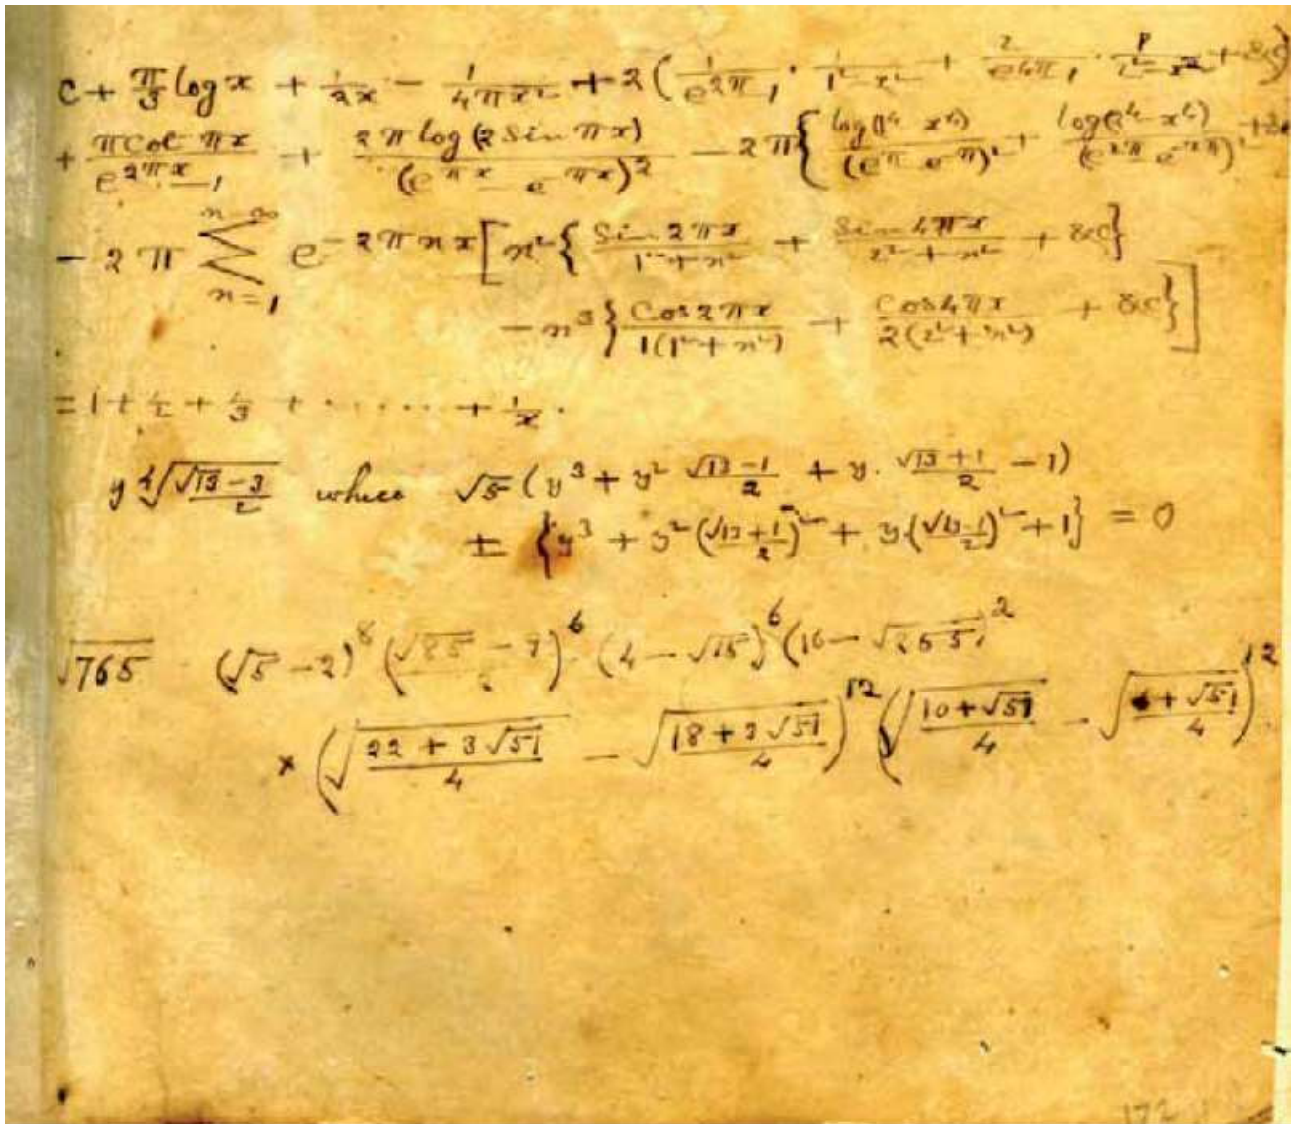 C + π/3 log x + 1/2x − 1/4πx² + 2 ( 1/e^2π−1 · 1/1²−x² + 2/e^4π−1 · 1/2²−x² + &c )
+ π Cot πx/e^2πx−1 + 2π log (2 Sin πx)/(e^πx − e^−πx)² − 2π { log(1⁴−x⁴)/(e^π − e^−π)² + log(2⁴−x⁴)/(e^2π − e^−2π)² + &c
− 2π Σ n=1 n=∞ e^−2πnx [ n² { Sin 2πx/1²+n² + Sin 4πx/2²+n² + &c }
− n³ { Cos 2πx/1(1²+n²) + Cos 4πx/2(2²+n²) + &c } ]
= 1 + 1/2 + 1/3 + . . . . . + 1/x .
y ∜(√13−3/2) where √5 ( y³ + y² √13−1/2 + y. √13+1/2 − 1 )
± { y³ + y² (√13+1/2)² + y {√13−1/2)² + 1 } = 0
√765 (√5 − 2)⁸ (√85 − 9/2)⁶ (4 − √15)⁶ (16 − √255)²
× ( √(22 + 3√51/4) − √(18 + 3√51/4) )¹² ( √(10 + √51/4) − √( + √51/4) )¹²
172